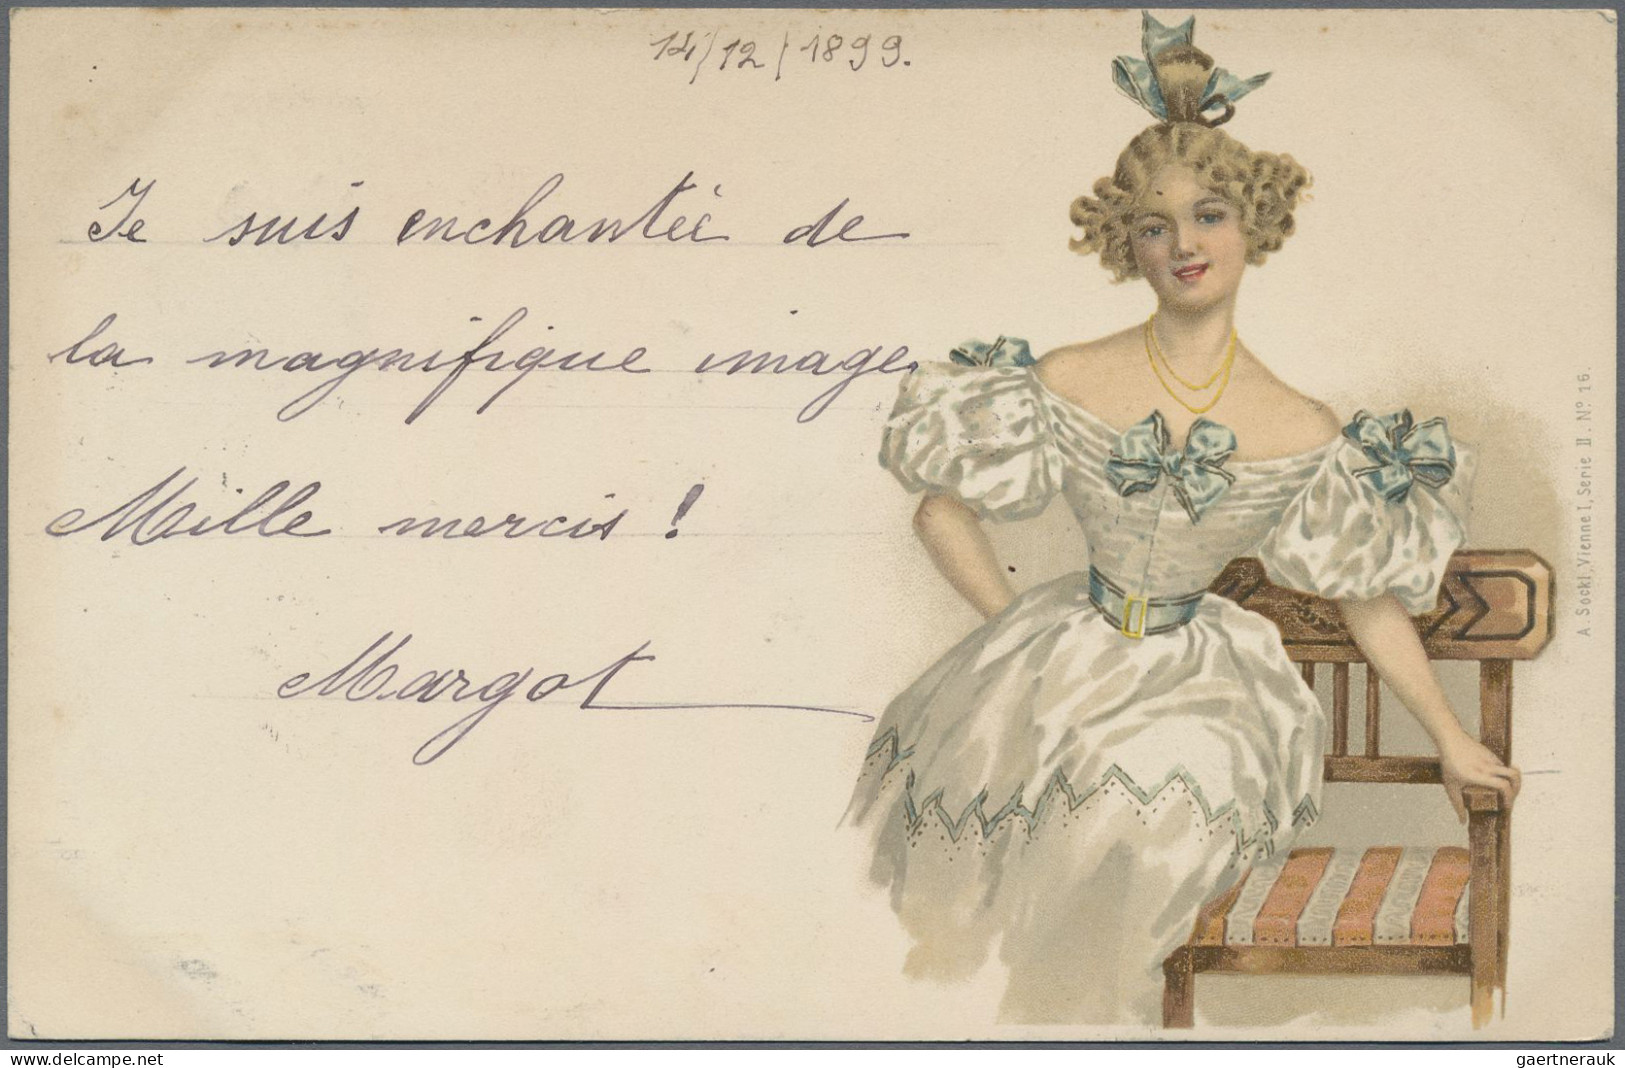 14/12/1899.
Je suis enchantée de
la magnifique image.
Mille mercis !
Margot
A. Sockl, Vienne I, Serie II. Nº 16.
delcampe.net
gaertnerauk